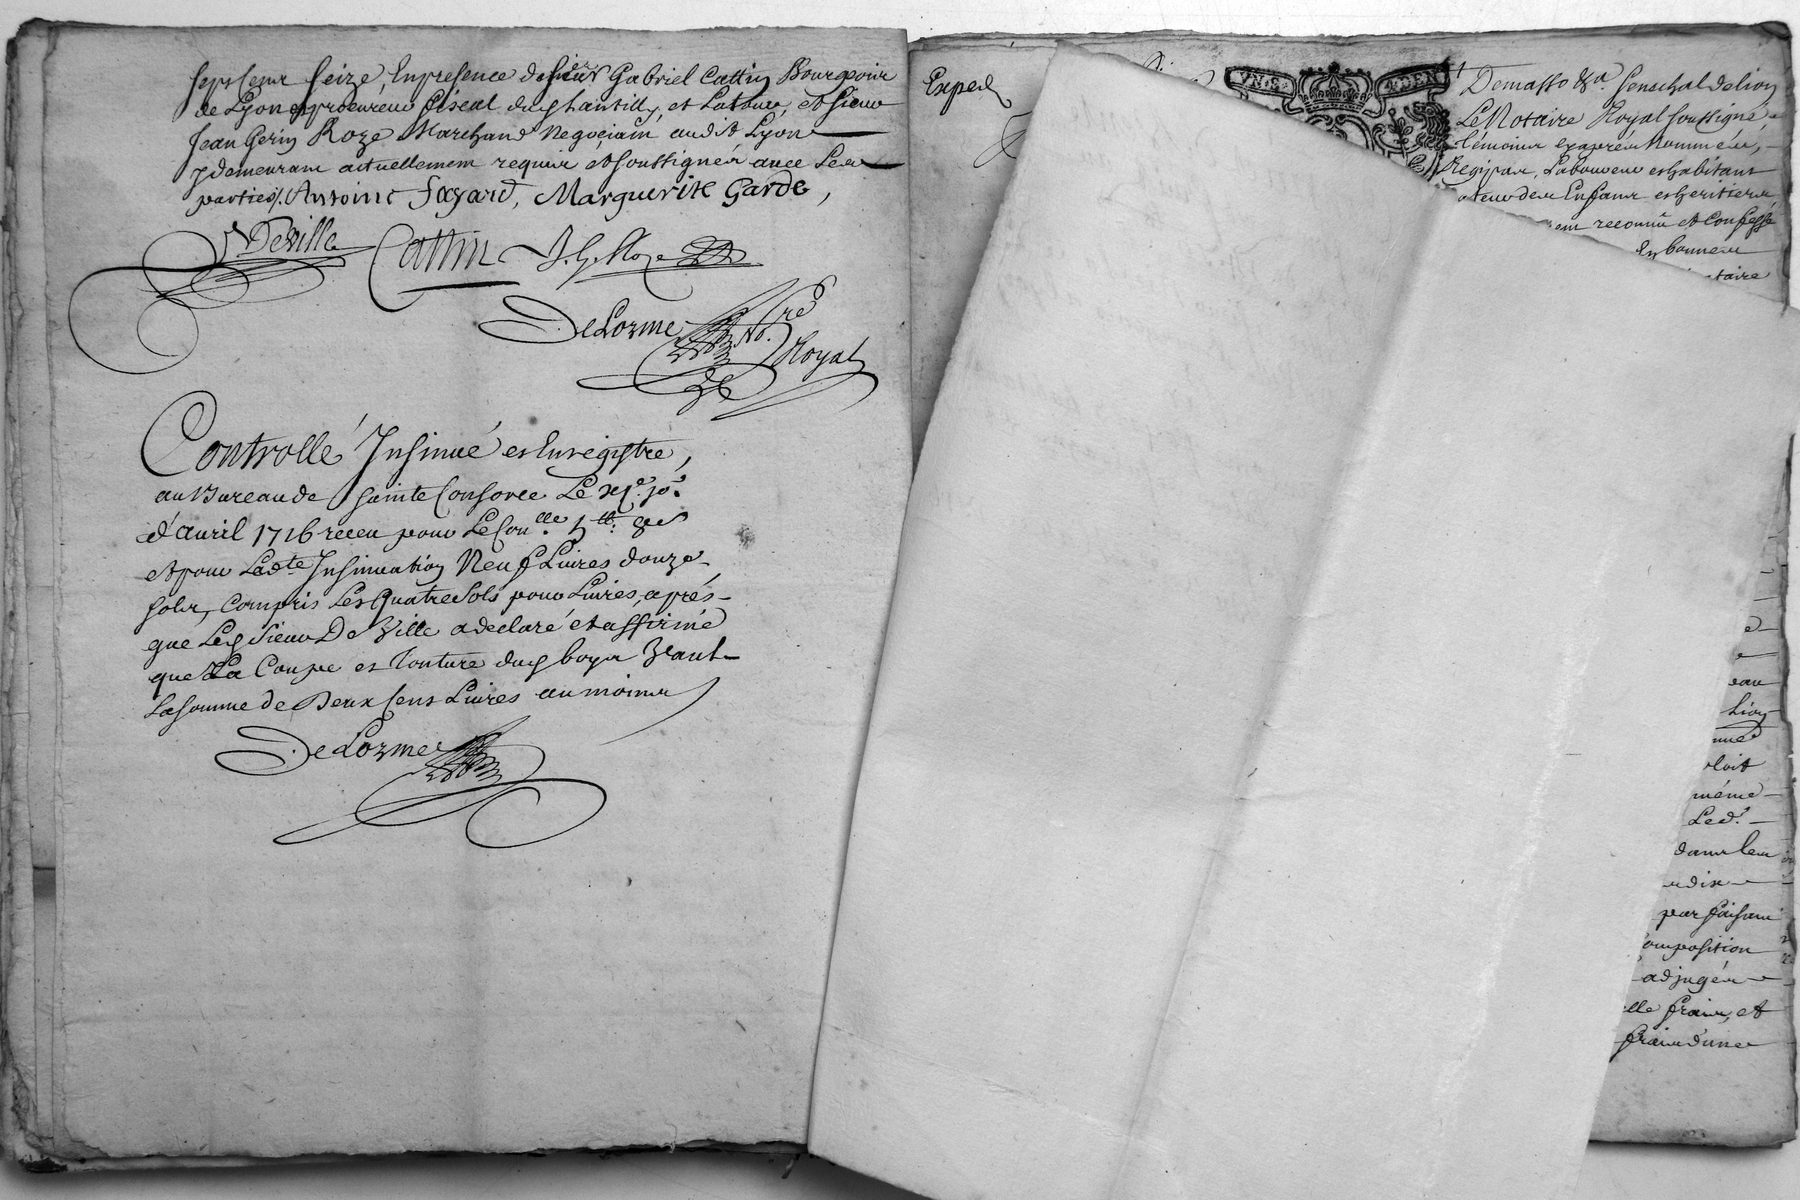 sept cent seize, En presence de sieur Gabriel Cattin Bourgeois
de Lyon et procureur fiscal dud Chantilly, et Latour, et sieur
Jean Gerin Roze Marchand Negociant audit Lyon
y demeurant actuellement requis et soussignés avec Les
parties/. Antoine fayard, Marguerite Garde,
DeVille Cattin J. G. Roze
DeLorme No.re
Royal
Controllé Insinué et Enregistre,
au Bureau de sainte Consorce Le jo.r
d'avril 1716 receu pour Le Con.lle
et pour Lad.te Insinuation Neuf Livres douze
sols, compris Les Quatre sols pour Livres, aprés
que Led sieur De Ville a declaré et affirmé
que La Coupe et Tonture dud boys Vaut
La somme de Deux Cens Livres au moins
DeLorme
Exped
VN S.
DEN
Demasso &a. Senechal de Lion
Le Notaire Royal soussigné
témoins exaprés Nommés,
Laboureur et habitant
Enfans et heritiers
reconnu et Confessé
En bonnes
taire
eau
Lion
nue
loit
même
Led.t
dans les
dix
par faisant
omposition
adjugés
elle frais, et
frais d'une